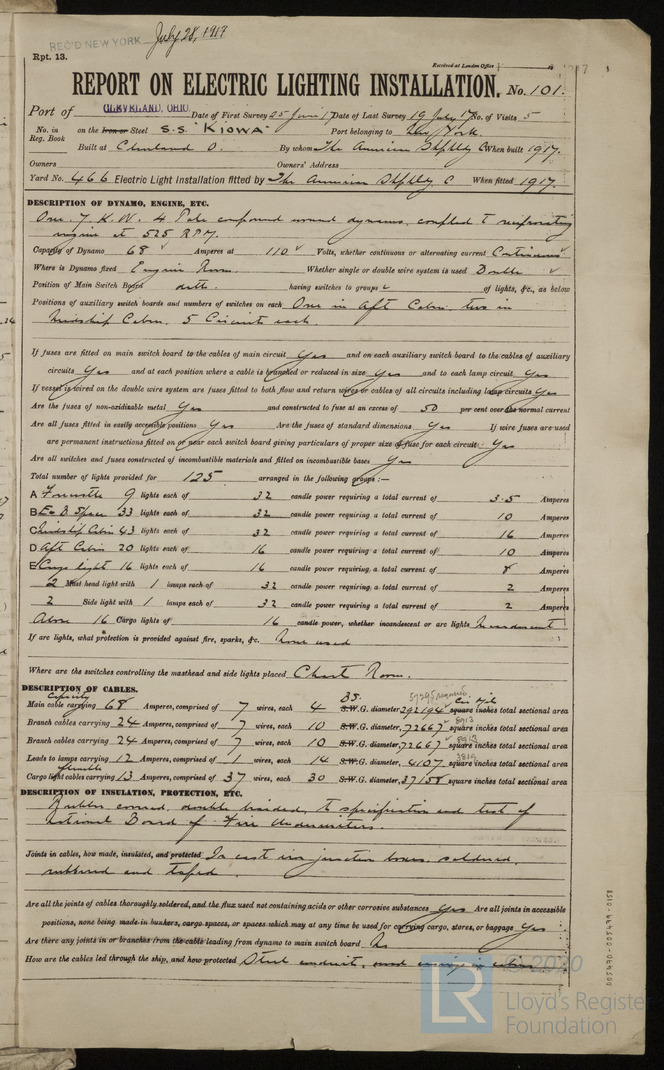 REC'D NEW YORK July 28, 1917
Rpt. 13.
Received at London Office
REPORT ON ELECTRIC LIGHTING INSTALLATION. No. 101.
Port of CLEVELAND, OHIO. Date of First Survey 25 June 17 Date of Last Survey 19 July 17 No. of Visits 5
No. in Reg. Book on the Iron or Steel S.S. "KIOWA" Port belonging to New York.
Built at Cleveland O. By whom The American Shpbldg Co When built 1917.
Owners Owners' Address
Yard No. 466 Electric Light Installation fitted by The American Shpbldg C When fitted 1917.
DESCRIPTION OF DYNAMO, ENGINE, ETC.
One 7 K.W. 4 Pole compound wound dynamo, coupled to reciprocating
engine at 525 RPM.
Capacity of Dynamo 68 Amperes at 110 Volts, whether continuous or alternating current Continuous
Where is Dynamo fixed Engine Room. Whether single or double wire system is used Double
Position of Main Switch Board ditto. having switches to groups of lights, &c., as below
Positions of auxiliary switch boards and numbers of switches on each One in Aft Cabin, two in
Midship Cabin. 5 Circuits each.
If fuses are fitted on main switch board to the cables of main circuit Yes and on each auxiliary switch board to the cables of auxiliary
circuits Yes and at each position where a cable is branched or reduced in size Yes and to each lamp circuit Yes
If vessel is wired on the double wire system are fuses fitted to both flow and return wires or cables of all circuits including lamp circuits Yes
Are the fuses of non-oxidizable metal Yes and constructed to fuse at an excess of 50 per cent over the normal current
Are all fuses fitted in easily accessible positions Yes Are the fuses of standard dimensions Yes If wire fuses are used
are permanent instructions fitted on or near each switch board giving particulars of proper size of fuse for each circuit Yes
Are all switches and fuses constructed of incombustible materials and fitted on incombustible bases Yes
Total number of lights provided for 125 arranged in the following groups :—
A Forecastle 9 lights each of 32 candle power requiring a total current of 3.5 Amperes
B E & B Space 33 lights each of 32 candle power requiring a total current of 10 Amperes
C Midship Cabin 43 lights each of 32 candle power requiring a total current of 16 Amperes
D Aft Cabin 20 lights each of 16 candle power requiring a total current of 10 Amperes
E Cargo light 16 lights each of 16 candle power requiring a total current of 8 Amperes
2 Mast head light with 1 lamps each of 32 candle power requiring a total current of 2 Amperes
2 Side light with 1 lamps each of 32 candle power requiring a total current of 2 Amperes
Above 16 Cargo lights of 16 candle power, whether incandescent or arc lights Incandescent
If arc lights, what protection is provided against fire, sparks, &c. None used
Where are the switches controlling the masthead and side lights placed Chart Room.
DESCRIPTION OF CABLES.
capacity B.S. Cir Mil
Main cable carrying 68 Amperes, comprised of 7 wires, each 4 S.W.G. diameter, 292194 square inches total sectional area
Branch cables carrying 24 Amperes, comprised of 7 wires, each 10 S.W.G. diameter, 72667 square inches total sectional area
Branch cables carrying 24 Amperes, comprised of 7 wires, each 10 S.W.G. diameter, 72667 square inches total sectional area
Leads to lamps carrying 12 Amperes, comprised of 1 wires, each 14 S.W.G. diameter, 4107 square inches total sectional area
flexible
Cargo light cables carrying 13 Amperes, comprised of 37 wires, each 30 S.W.G. diameter, 37158 square inches total sectional area
DESCRIPTION OF INSULATION, PROTECTION, ETC.
Rubber covered, double braided, to specification and test of
National Board of Fire Underwriters.
Joints in cables, how made, insulated, and protected In cast iron junction boxes, soldered,
rubbered and taped.
Are all the joints of cables thoroughly soldered, and the flux used not containing acids or other corrosive substances Yes Are all joints in accessible
positions, none being made in bunkers, cargo spaces, or spaces which may at any time be used for carrying cargo, stores, or baggage Yes
Are there any joints in or branches from the cable leading from dynamo to main switch board No
How are the cables led through the ship, and how protected Steel conduit, wood casing in cabins
005430-005439-0158
© 2020
LR Lloyd's Register
Foundation